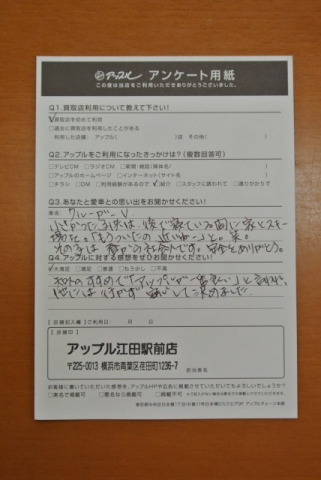 アップル アンケート用紙
この度は当店をご利用いただきありがとうございました。
Q1.買取店利用について教えて下さい!
☑買取店を初めて利用
□過去に買取店を利用したことがある
利用した店舗: アップル( )店 その他( )
Q2.アップルをご利用になったきっかけは?(複数回答可)
□テレビCM □ラジオCM □新聞・雑誌(媒体名/ )
□アップルのホームページ □インターネット(サイト名 )
□チラシ □DM □利用経験があるので ☑紹介 □スタッフに誘われて □通りがかりで
Q3.あなたと愛車との思い出をお聞かせください!
車名: クルーガーV
小さかった子供は後で寝ている間に家とスキー
場だった。「もうついたの 近いねー」と。笑。
その子は 春から社会人です。安全をありがとう。
Q4.アップルに対する感想をぜひお聞かせください!
☑大満足 □満足 □普通 □もう少し □不満
のすすめで「アップルが一番良い」と言われ
他には行かず して決めました
【店舗記入欄】 ご利用日 月 日
【店舗印】
アップル江田駅前店
〒225-0013 横浜市青葉区荏田町1236-7
担当者名
お客様に書いていただいた感想を、アップルHPや広告に掲載させていただいてもよろしいでしょうか?
□実名で掲載可 □匿名なら掲載可 □掲載不可